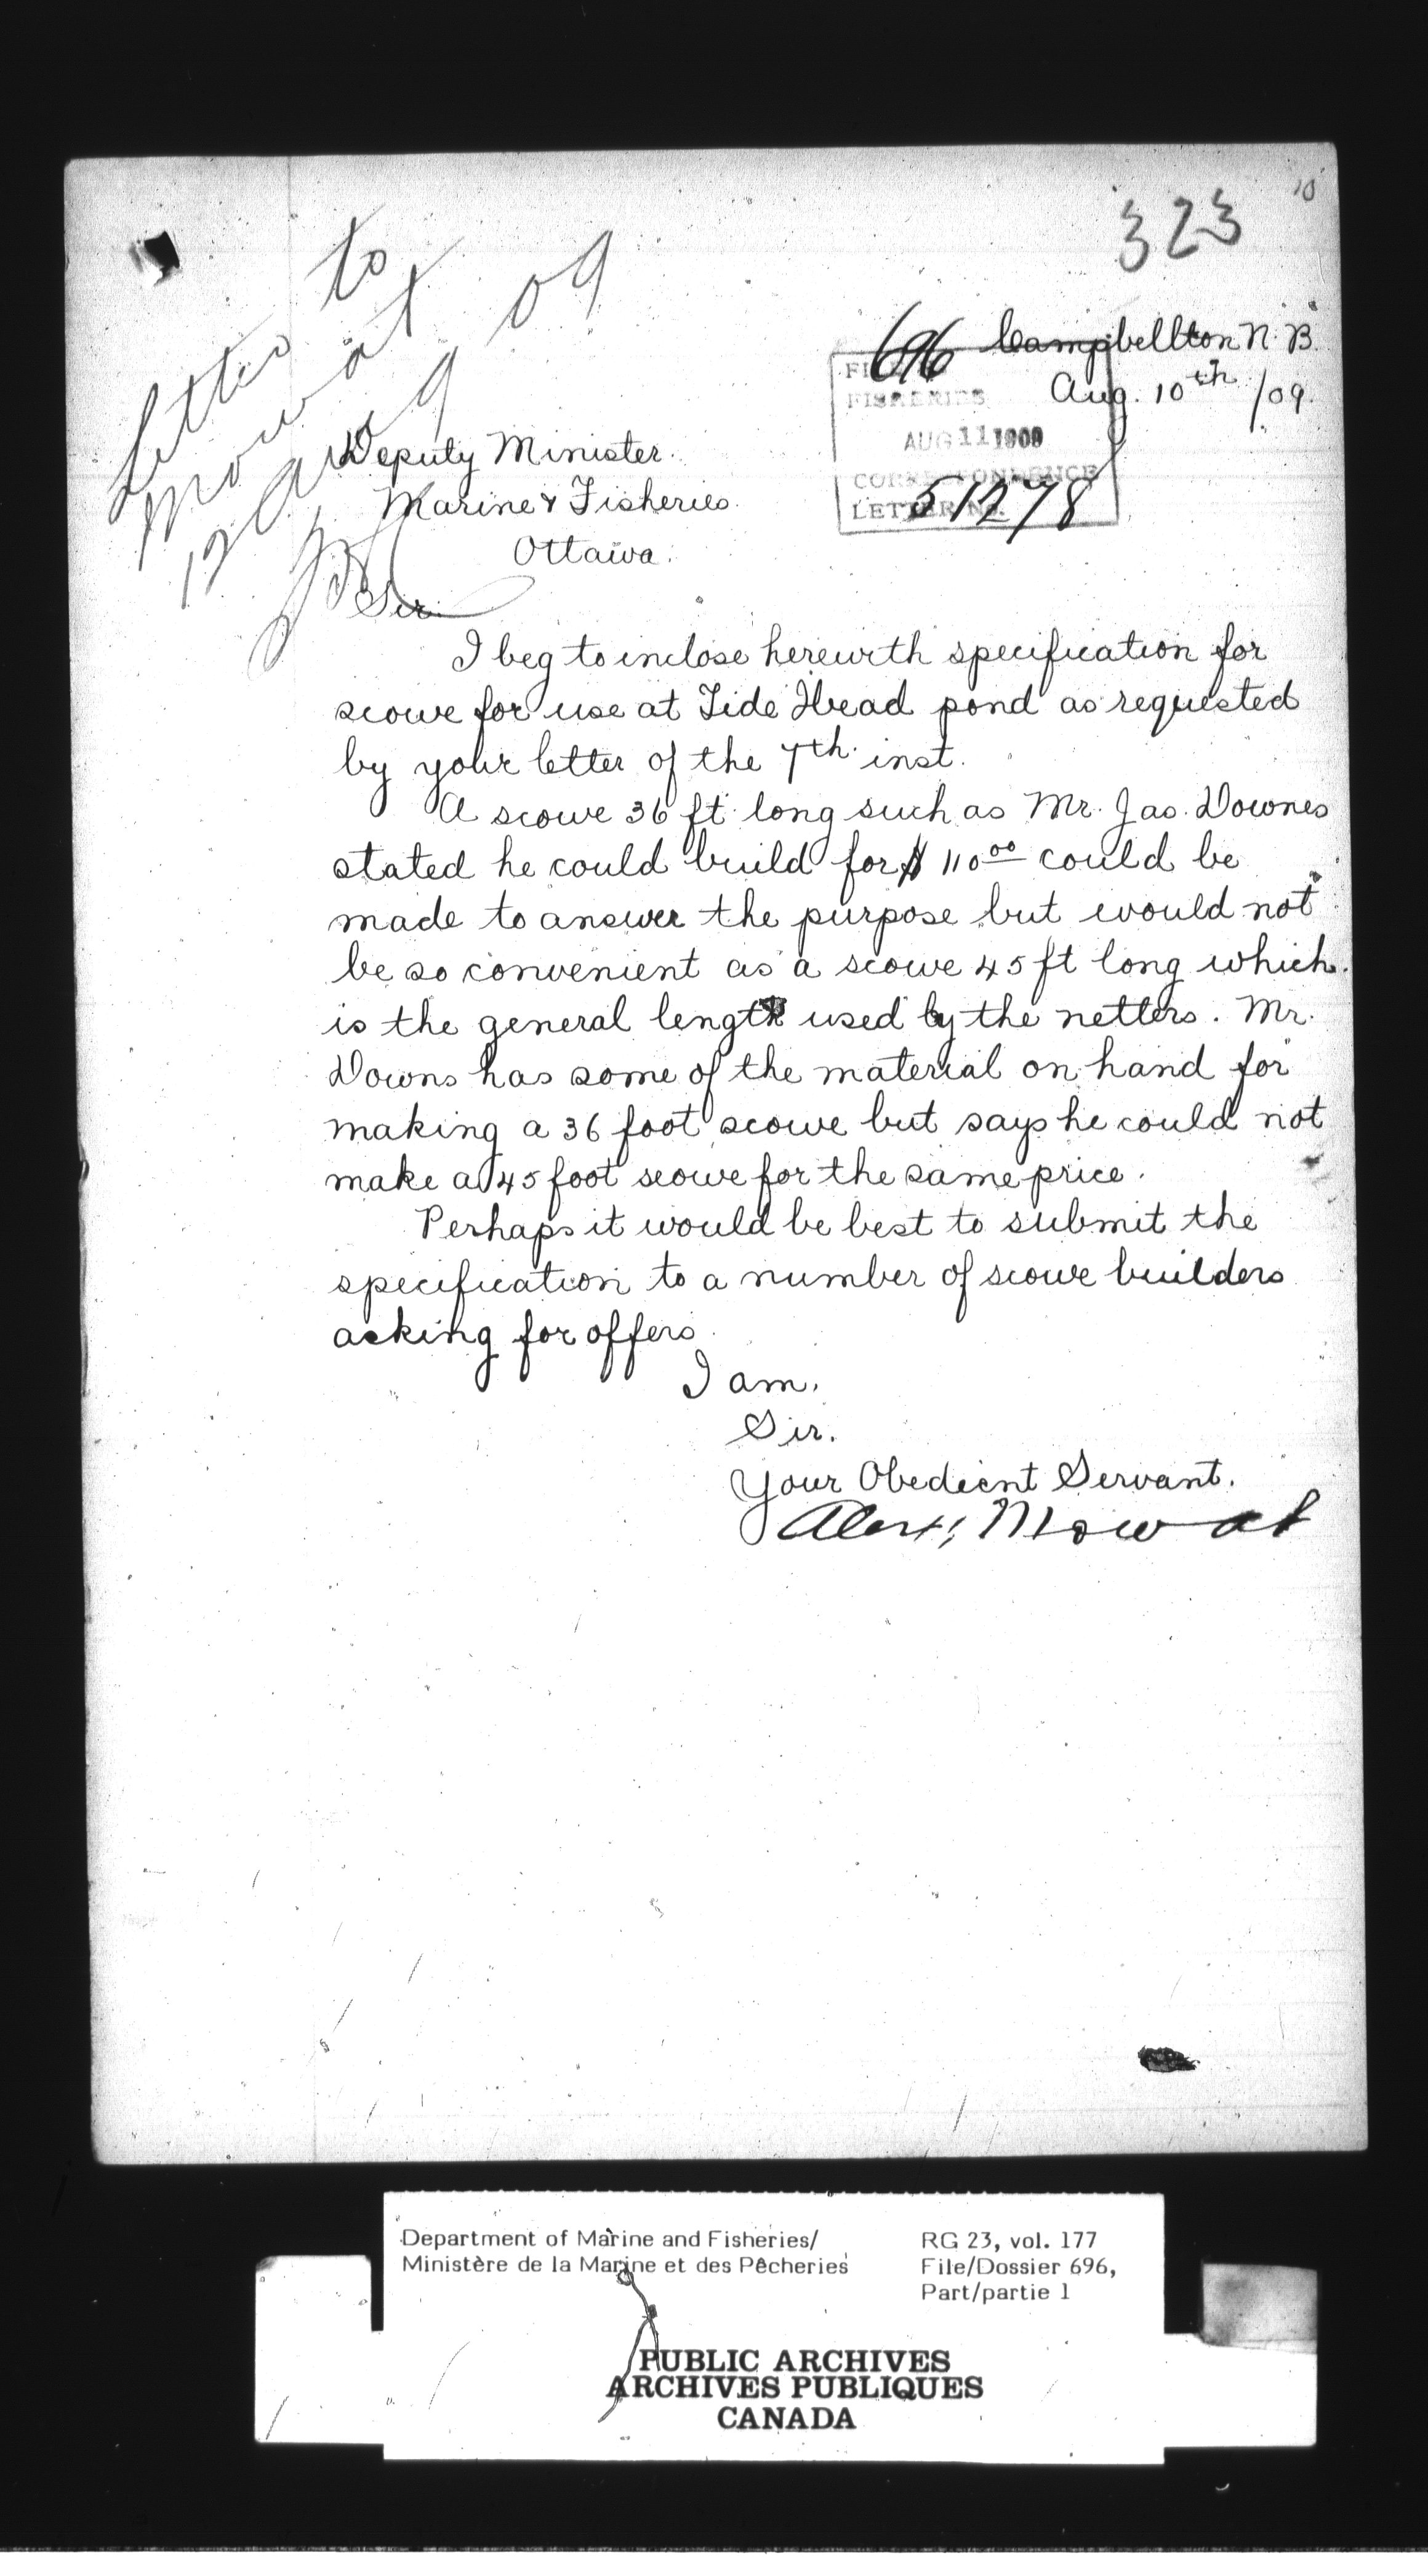 10
323
Letter to
Mowat
12 Aug 09
696 Campbellton N. B.
Aug. 10th /09.
FISHERIES
AUG 11 1909
CORRESPONDENCE
LETTER No.
51278
Deputy Minister.
Marine & Fisheries.
Ottawa.
Sir.
I beg to inclose herewith specification for
scowe for use at Tide Head pond as requested
by your letter of the 7th. inst.
A scowe 36 ft long such as Mr. Jas. Downes
stated he could build for $ 110 00 could be
made to answer the purpose but would not
be so convenient as a scowe 45 ft long which
is the general length used by the netters. Mr.
Downs has some of the material on hand for
making a 36 foot scowe but says he could not
make a 45 foot scowe for the same price.
Perhaps it would be best to submit the
specification to a number of scowe builders
asking for offers.
I am.
Sir.
Your Obedient Servant.
Alex; Mowat
Department of Marine and Fisheries/
Ministère de la Marine et des Pêcheries
RG 23, vol. 177
File/Dossier 696,
Part/partie 1
PUBLIC ARCHIVES
ARCHIVES PUBLIQUES
CANADA